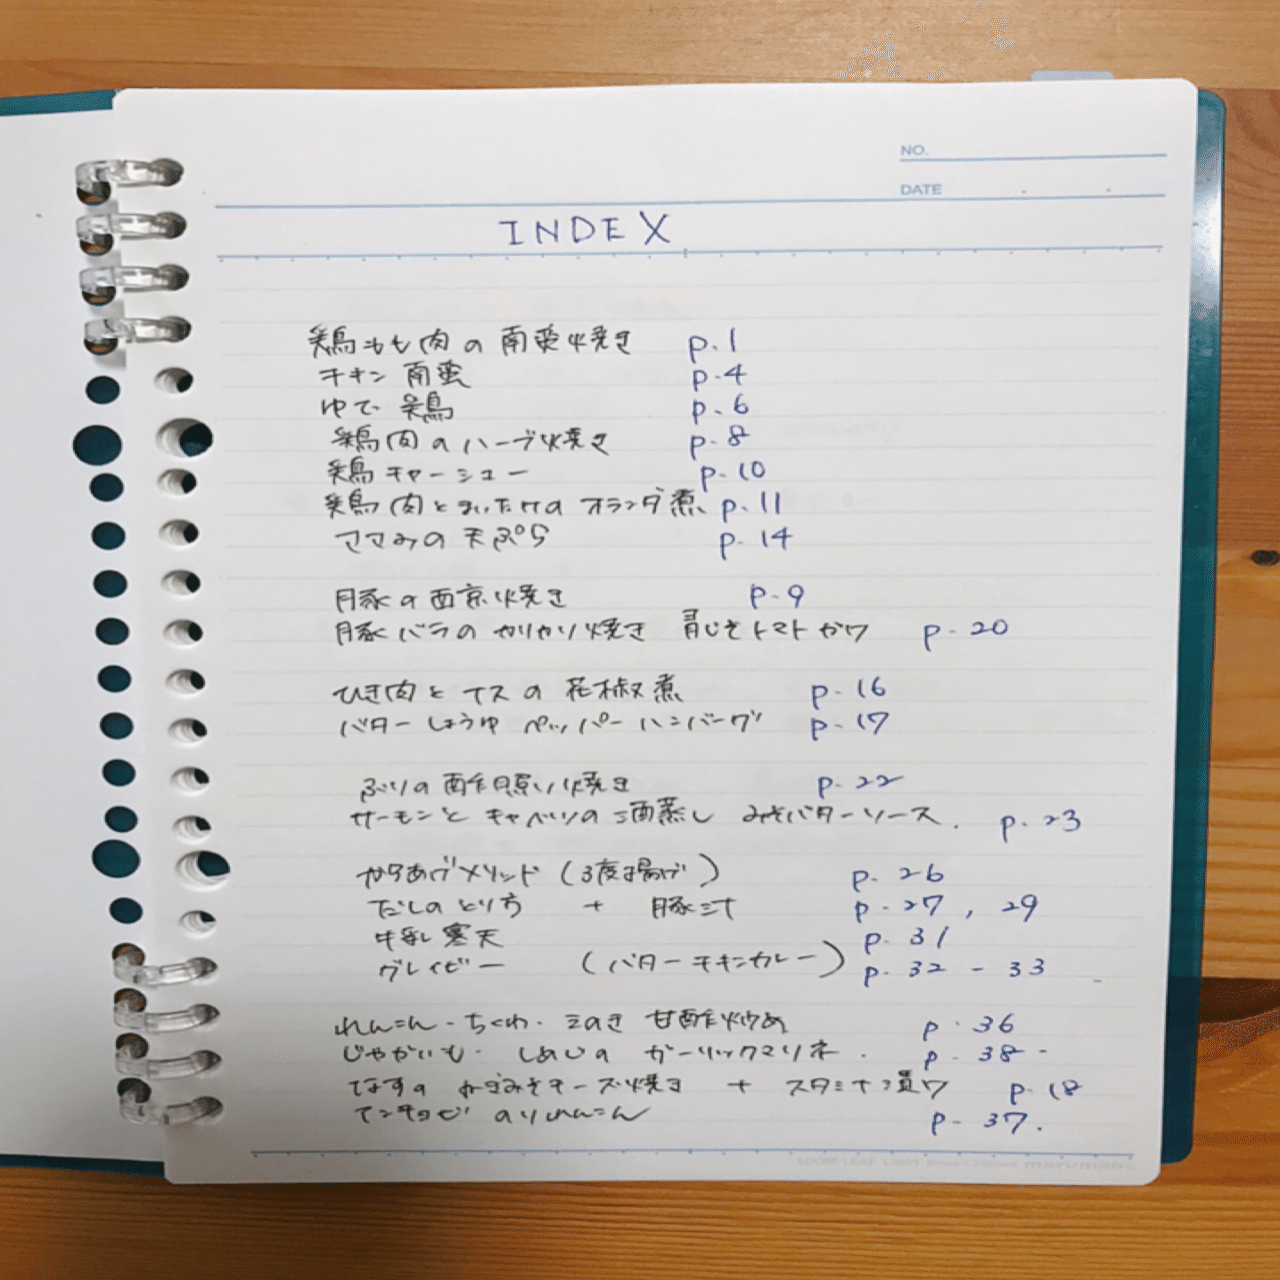 NO.
DATE
INDEX
鶏もも肉の南蛮焼き p.1
チキン南蛮 p.4
ゆで鶏 p.6
鶏肉のハーブ焼き p.8
鶏チャーシュー p.10
鶏肉とまいたけのオランダ煮 p.11
ササみの天ぷら p.14
豚の西京焼き p.9
豚バラのカリカリ焼き 青じそトマトがけ p.20
ひき肉とナスの花椒煮 p.16
バターしょうゆペッパーハンバーグ p.17
ぶりの酢照り焼き p.22
サーモンとキャベツの酒蒸し みそバターソース. p.23
からあげメソッド (3度揚げ) p.26
だしのとり方 + 豚汁 p.27, 29
牛乳寒天 p.31
グレイビー (バターチキンカレー) p.32-33
れんこん・ちくわ・えのき 甘酢炒め p.36
じゃがいも・しめじのガーリックマリネ. p.38
なすの みそチーズ焼き + スタミナ漬け p.18
アンチョビ のりれんこん p.37.